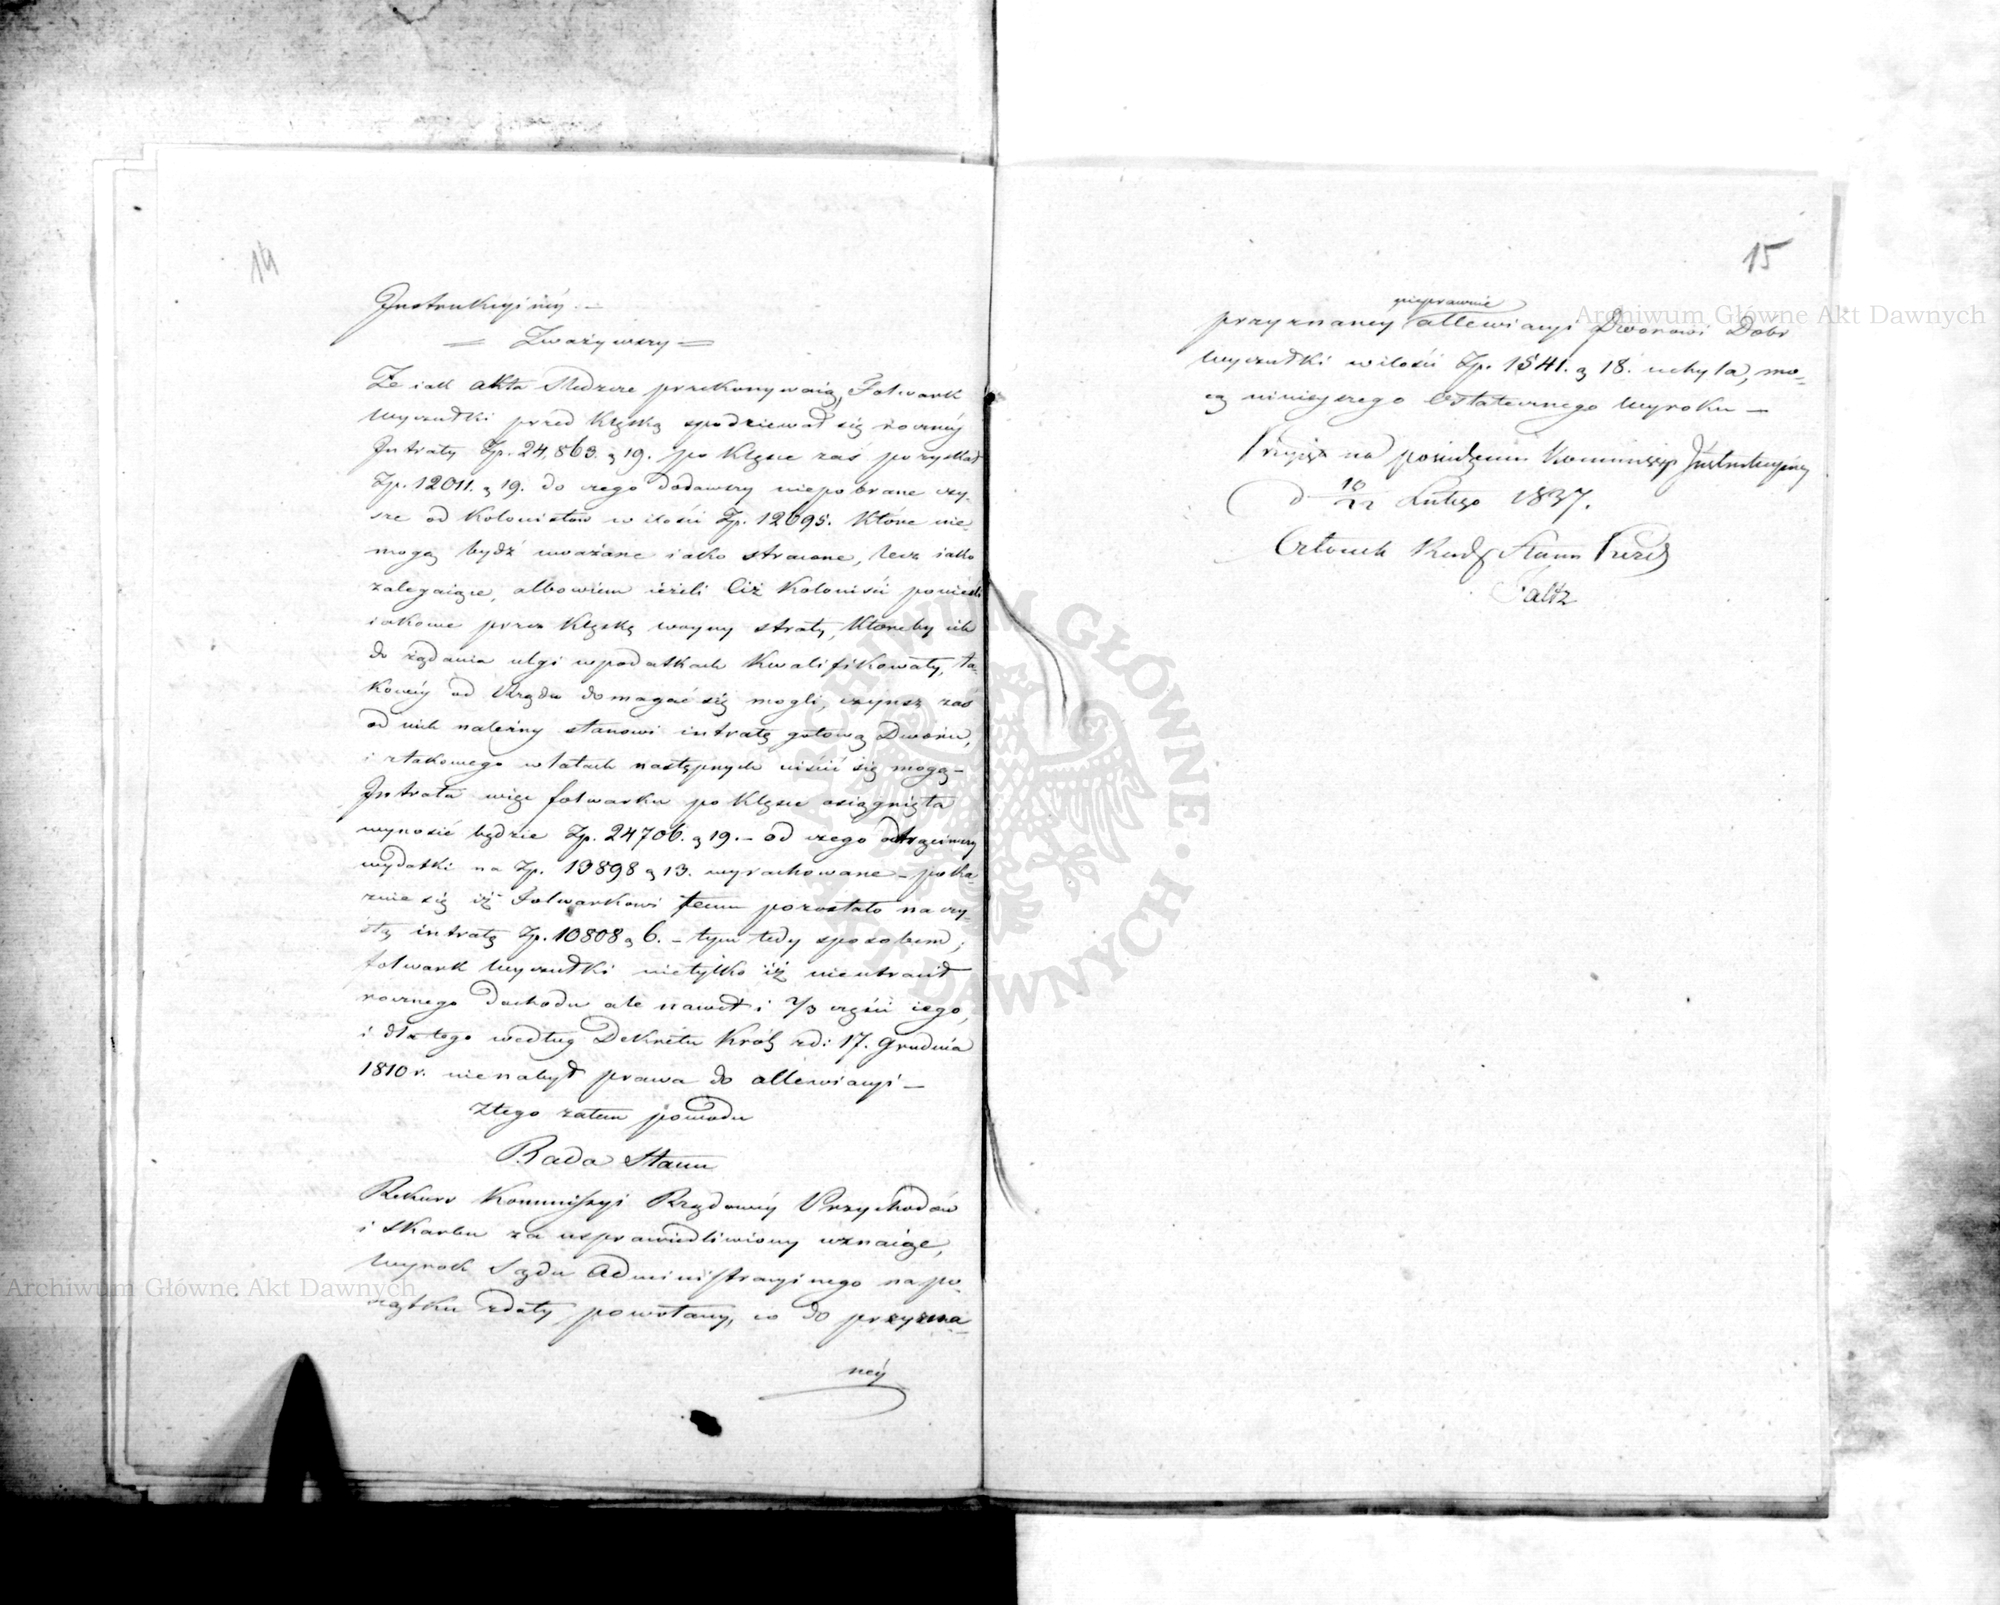 14
Instrukcyinéy. —
= Zważywszy =
Że iak akta Śledcze przekonywaią, Folwark
Wyczułki przed klęską spodziewał się roczney
Intraty Zp. 24,863. g 19. po klęsce zaś pozyskał
Zp. 12011. g 19. do czego dodawszy niepobrane czyn-
sze od kolonistow w ilości Zp. 12695. które nie
mogą bydź uważane iako stracone, lecz iako
zalegaiące, albowiem ieżeli Ciż koloniści ponieśli
iakowe przez klęskę woyny straty, któreby ich
do żądania ulgi w podatkach kwalifikowały, ta-
kowéy od Rządu domagać się mogli, czynsz zaś
od nich należny stanowi intratę gotową Dworu,
i z takowego w latach następnych uiścić się mogą —
Intrata więc folwarku po klęsce osiągnięta
wynosić będzie Zp. 24706. g 19. — od czego odtrąciwszy
wydatki na Zp. 13898 g 13. wyrachowane — poka-
zuie się iż Folwarkowi temu pozostało na czy-
stą intratę Zp. 10808 g 6. — tym tedy sposobem,
folwark Wyczułki nietylko iż nieutracił
rocznego dochodu ale nawet i 2/3 części iego,
i dla tego według Dekretu Król: z d: 17. Grudnia
1810 r. nie nabył prawa do allewiacyi —
Z tego zatem powodu
Rada Stanu
Rekurs Kommissyi Rządowéy Przychodów
i Skarbu za usprawiedliwiony uznaiąc,
Wyrok Sądu Administracyinego na po-
czątku z daty powołany, co do przyzna-
néy
15
nieprawnie
przyznanéy allewiacyi Dworowi Dobr
Wyczułki w ilości Zp. 1541. g 18. uchyla, mo-
cą ninieyszego Ostatecznego Wyroku —
Przyięto na posiedzeniu Kommissyi Instrukcyinéy
d 10/22 Lutego 1837.
Członek Rady Stanu Prezd:
Faltz
Archiwum Główne Akt Dawnych
Archiwum Główne Akt Dawnych
ARCHIWUM GŁÓWNE AKT DAWNYCH